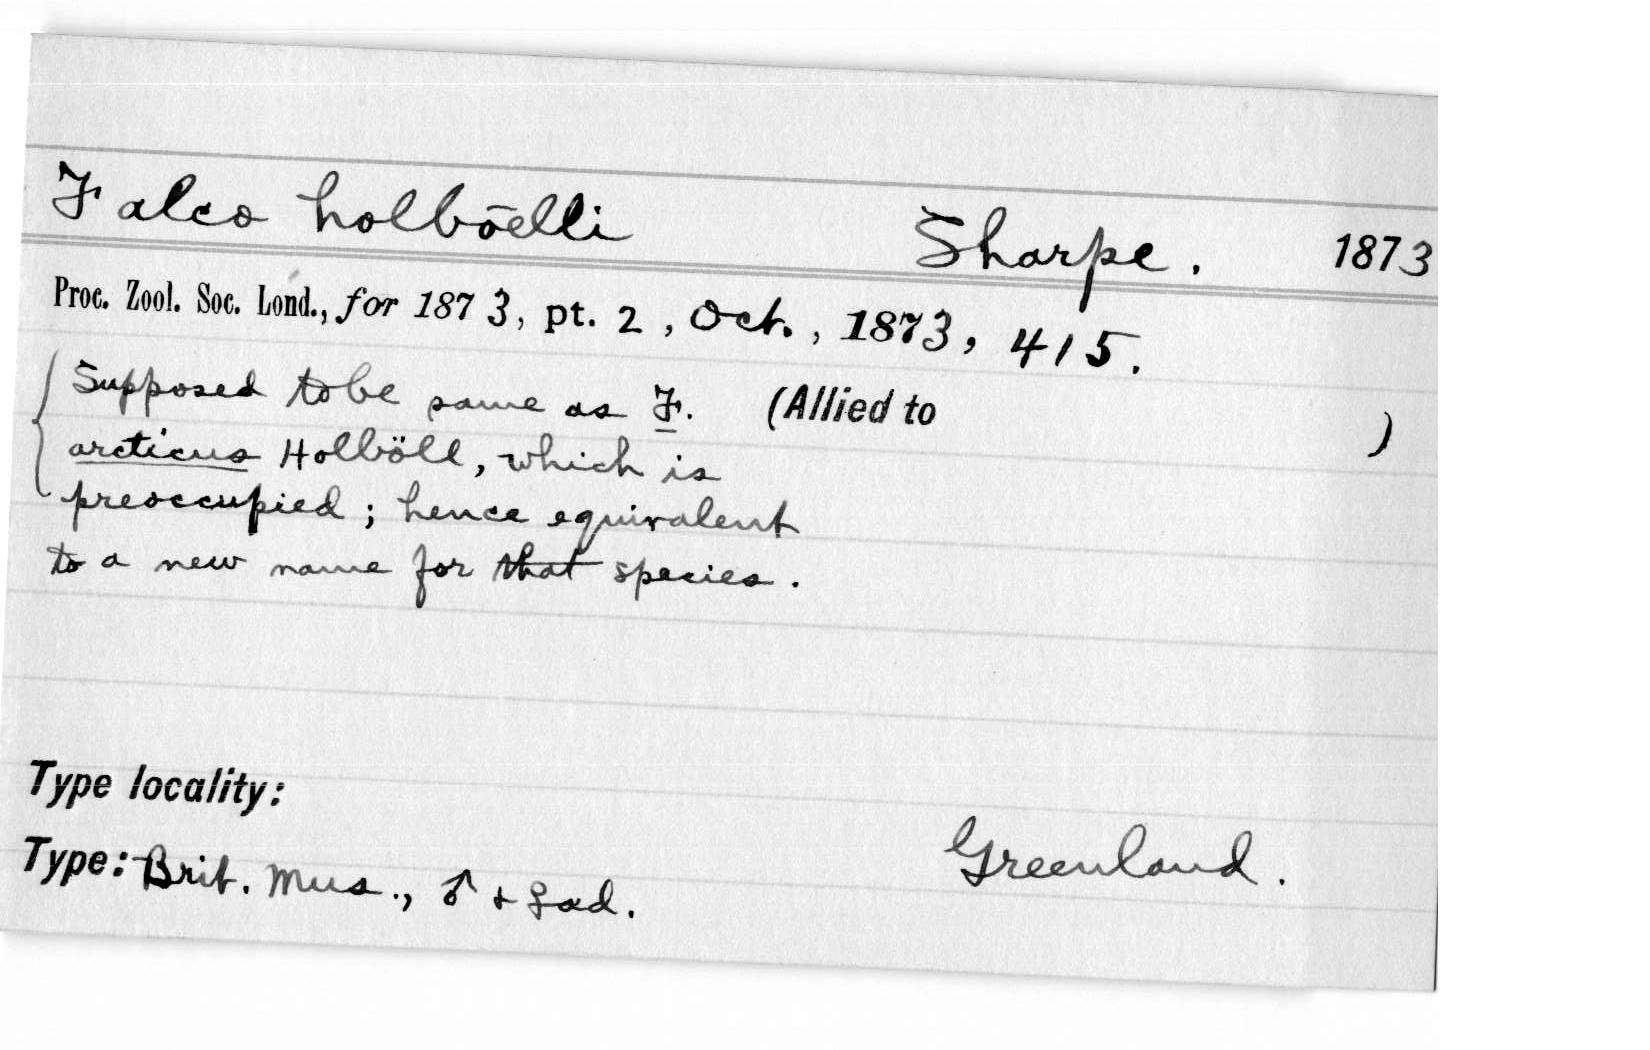 Falco holböelli Sharpe. 1873
Proc. Zool. Soc. Lond., for 1873, pt. 2, Oct., 1873, 415.
Supposed to be same as F. (Allied to )
arcticus Holböll, which is
preoccupied; hence equivalent
to a new name for that species.
Type locality:
Greenland.
Type: Brit. Mus., ♂ + ♀ ad.